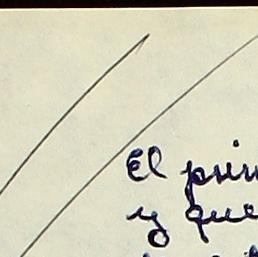 El prin
y que